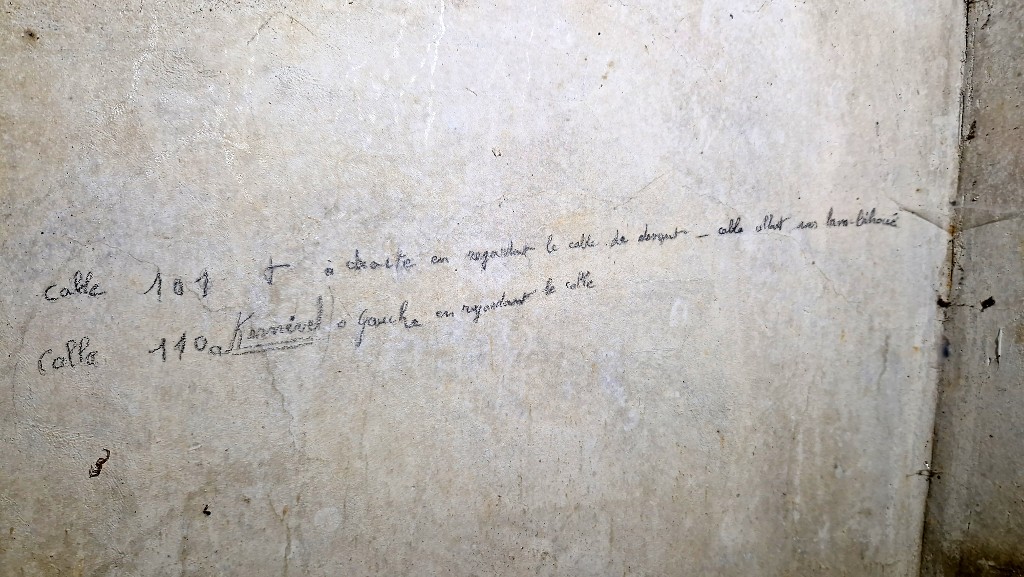 Cable 101 + à droite en regardant le cable de devant _ cable allant vers Lann-Bihoué
Cable 110 a Kernével à gauche en regardant le cable